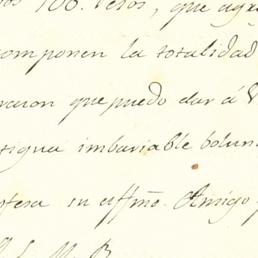 os 100. Pesos, que agre
componen la totalidad
racion que puedo dar a V
tigua imbariable bolun
ofesa su affmo. Amigo
L. M. B.